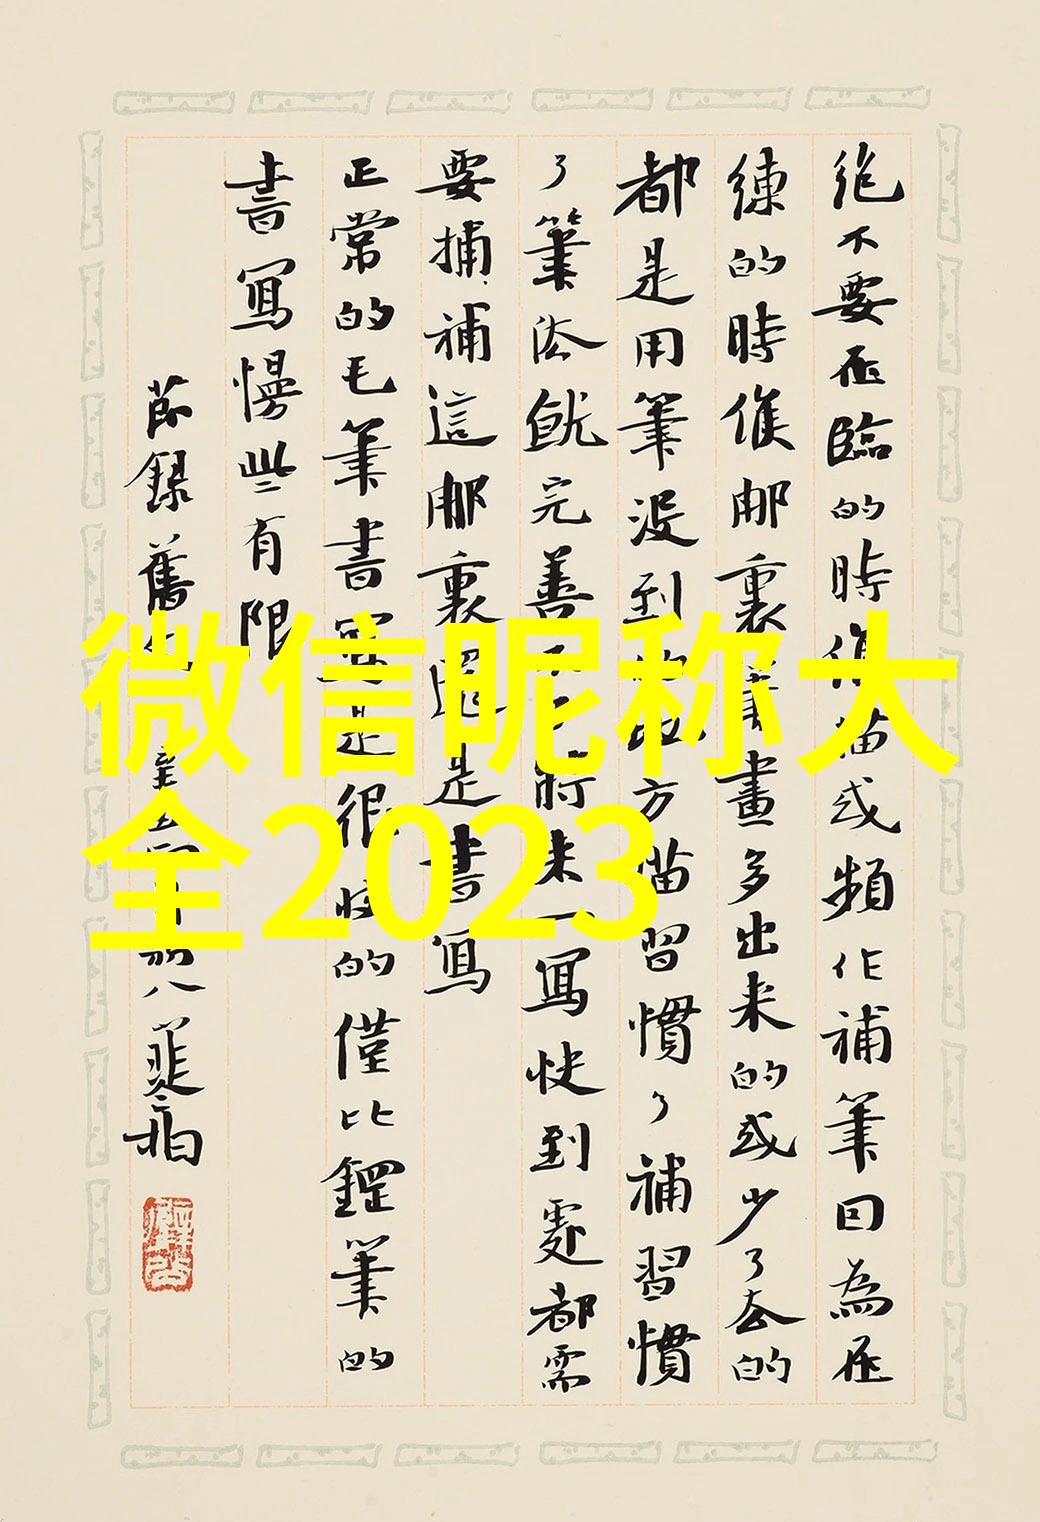 微信昵称大
全2023
絶不要在臨的時候描或頻作補筆因為在
練的時候那裏筆畫多出來的或少了去的
都是用筆沒到地方描習慣了補習慣
了筆法就完善不了將來一寫快到處都需
要捕補這那裏還是書寫
正常的毛筆書寫是很快的僅比鋼筆的
書寫慢些有限
節錄舊